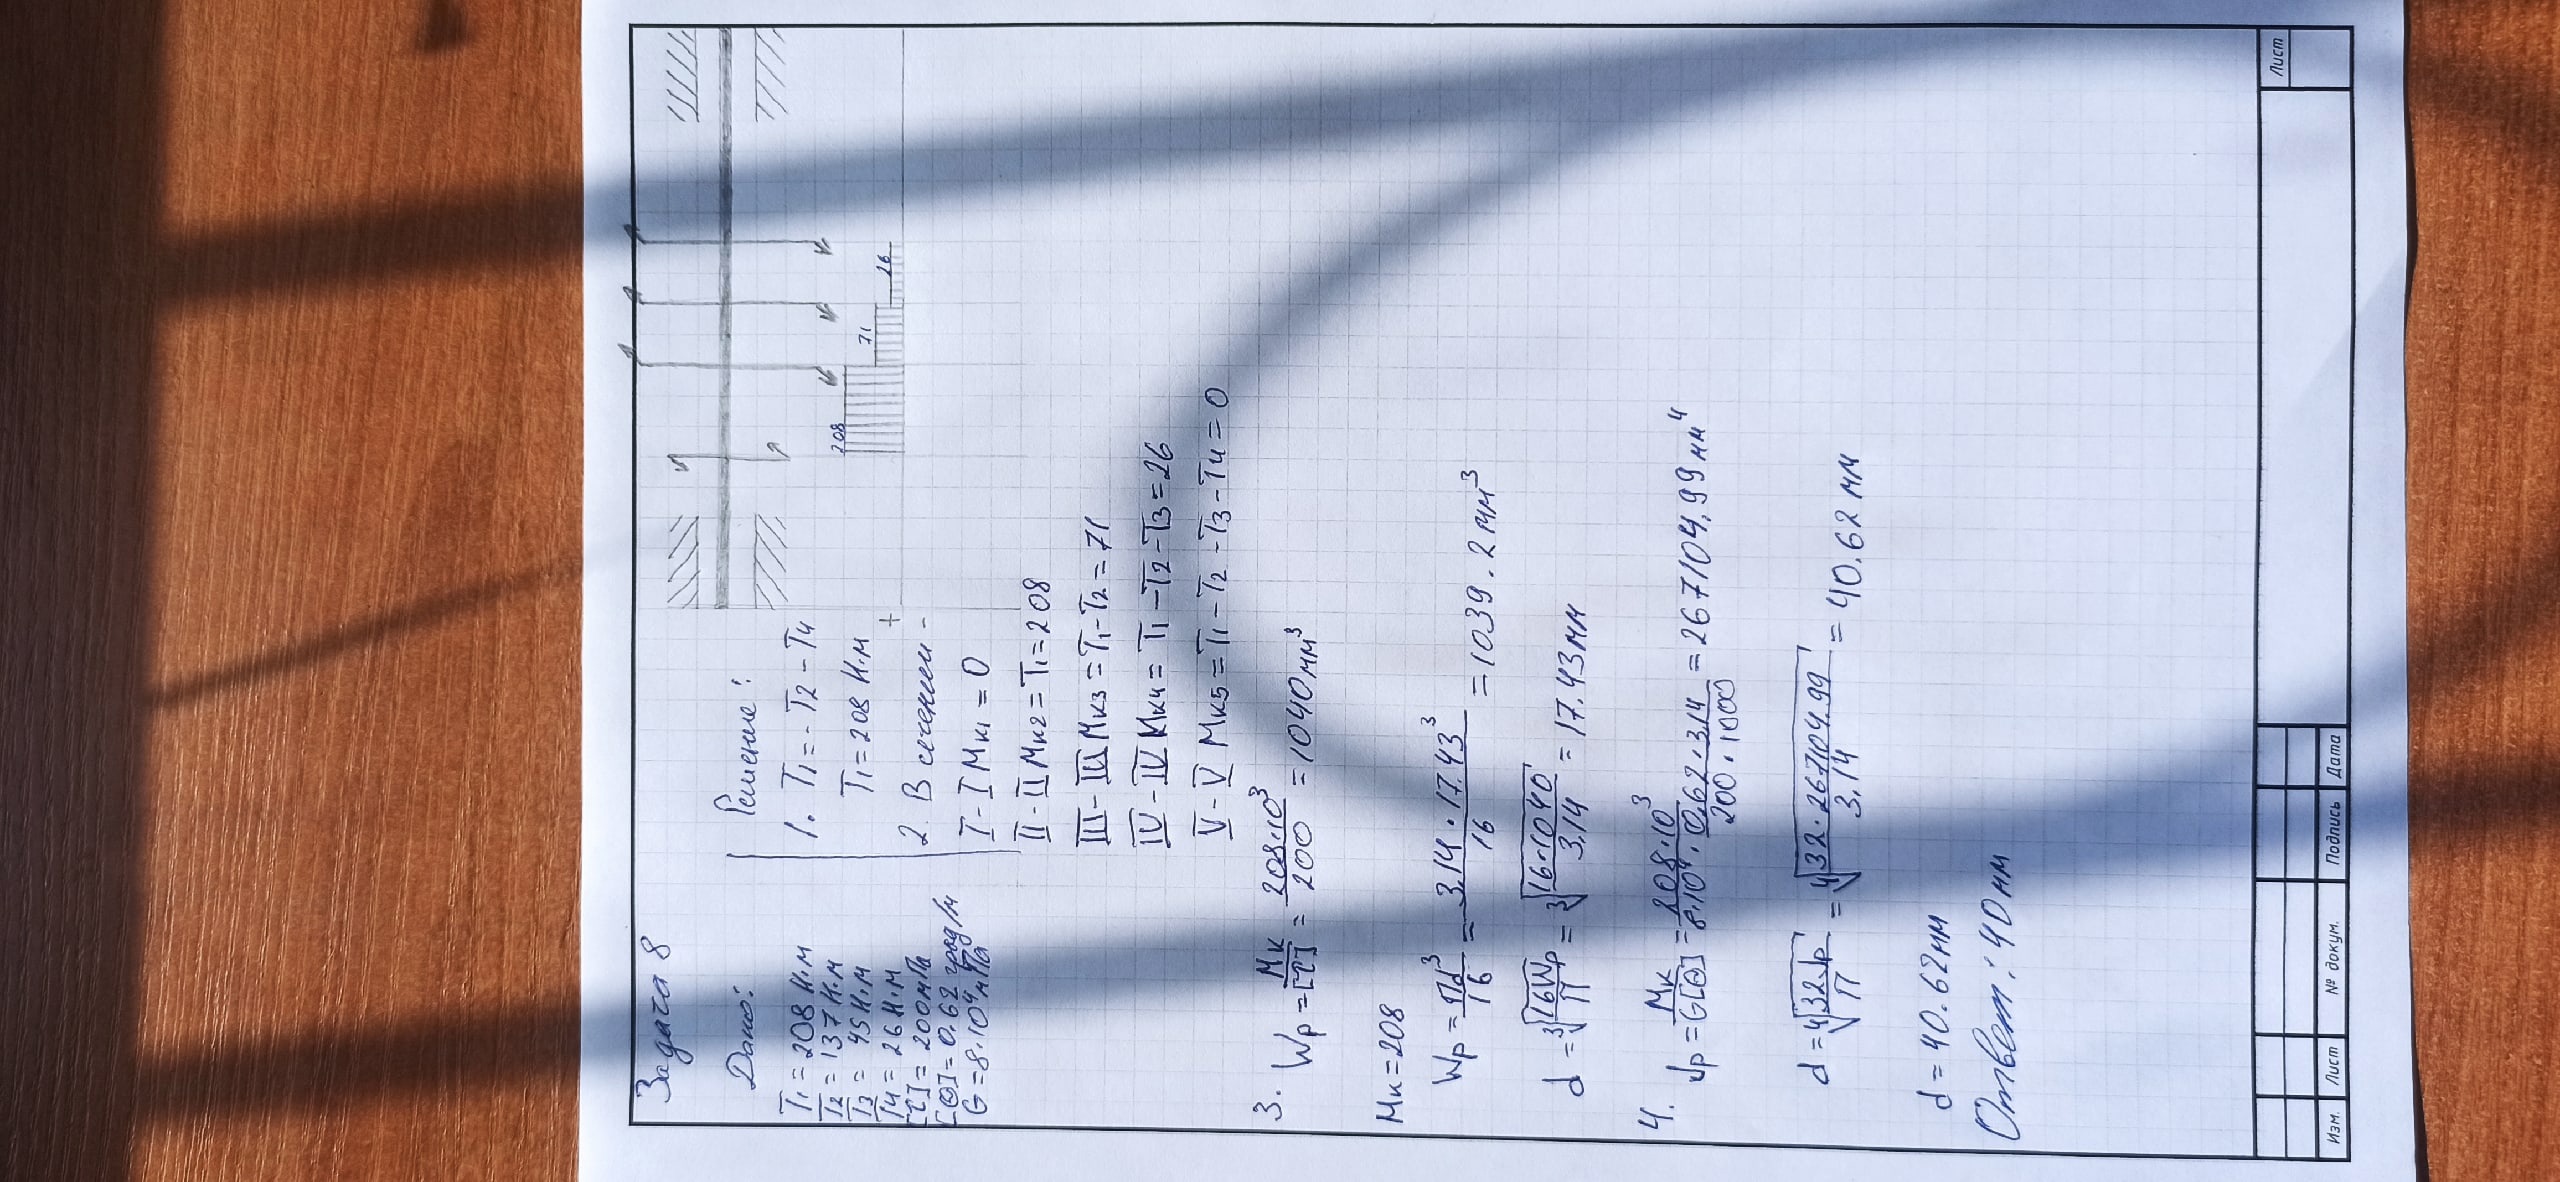 Задача 8
Дано:
T1 = 208 Н·м
T2 = 137 Н·м
T3 = 45 Н·м
T4 = 26 Н·м
[τ] = 200 мПа
[Θ] = 0.62 град/м
G = 8·10⁴ мПа
Решение:
1. T1 = - T2 - T4
T1 = 208 Н·м
2. В сечении -
I - I Mк1 = 0
II - II Mк2 = T1 = 208
III - III Mк3 = T1 - T2 = 71
IV - IV Mк4 = T1 - T2 - T3 = 26
V - V Mк5 = T1 - T2 - T3 - T4 = 0
208
71
26
+
3. Wp = Mк/[τ] = 208·10³/200 = 1040 мм³
Mк = 208
Wp = Пd³/16 = 3.14 · 17.43³/16 = 1039.2 мм³
d = ³√(16Wp/П) = ³√(16·1040/3.14) = 17.43 мм
4. Jp = Mк/G[Θ] = 208·10³/(8·10⁴ · (0.62 · 3.14)/(200 · 1000)) = 267104,99 мм⁴
d = ⁴√(32Jp/П) = ⁴√(32 · 267104.99/3.14) = 40.62 мм
d = 40.62 мм
Ответ: 40 мм
Изм. Лист № докум. Подпись Дата
Лист